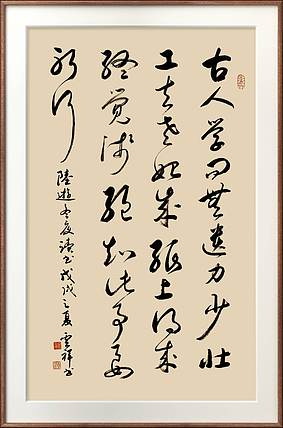 古人学问無遺力少壮
工夫老始成纸上得来
终觉浅绝知此事要
躬行
陸遊冬夜读书戊戌之夏 雲祥书